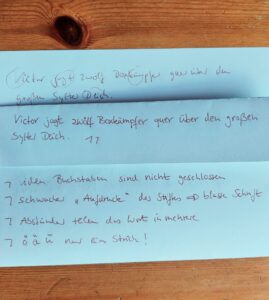 Victor jagt zwölf Boxkämpfer quer über den
großen Sylter Deich
Victor jagt zwölf Boxkämpfer quer über den großen
Sylter Deich.
Buchstaben sind nicht geschlossen
→ schwacher „Aufdruck" des Stiftes ⇒ blasse Schrift
→ Abstände teilen das Wort in mehrere
→ ö ä ü nur ein Strich!